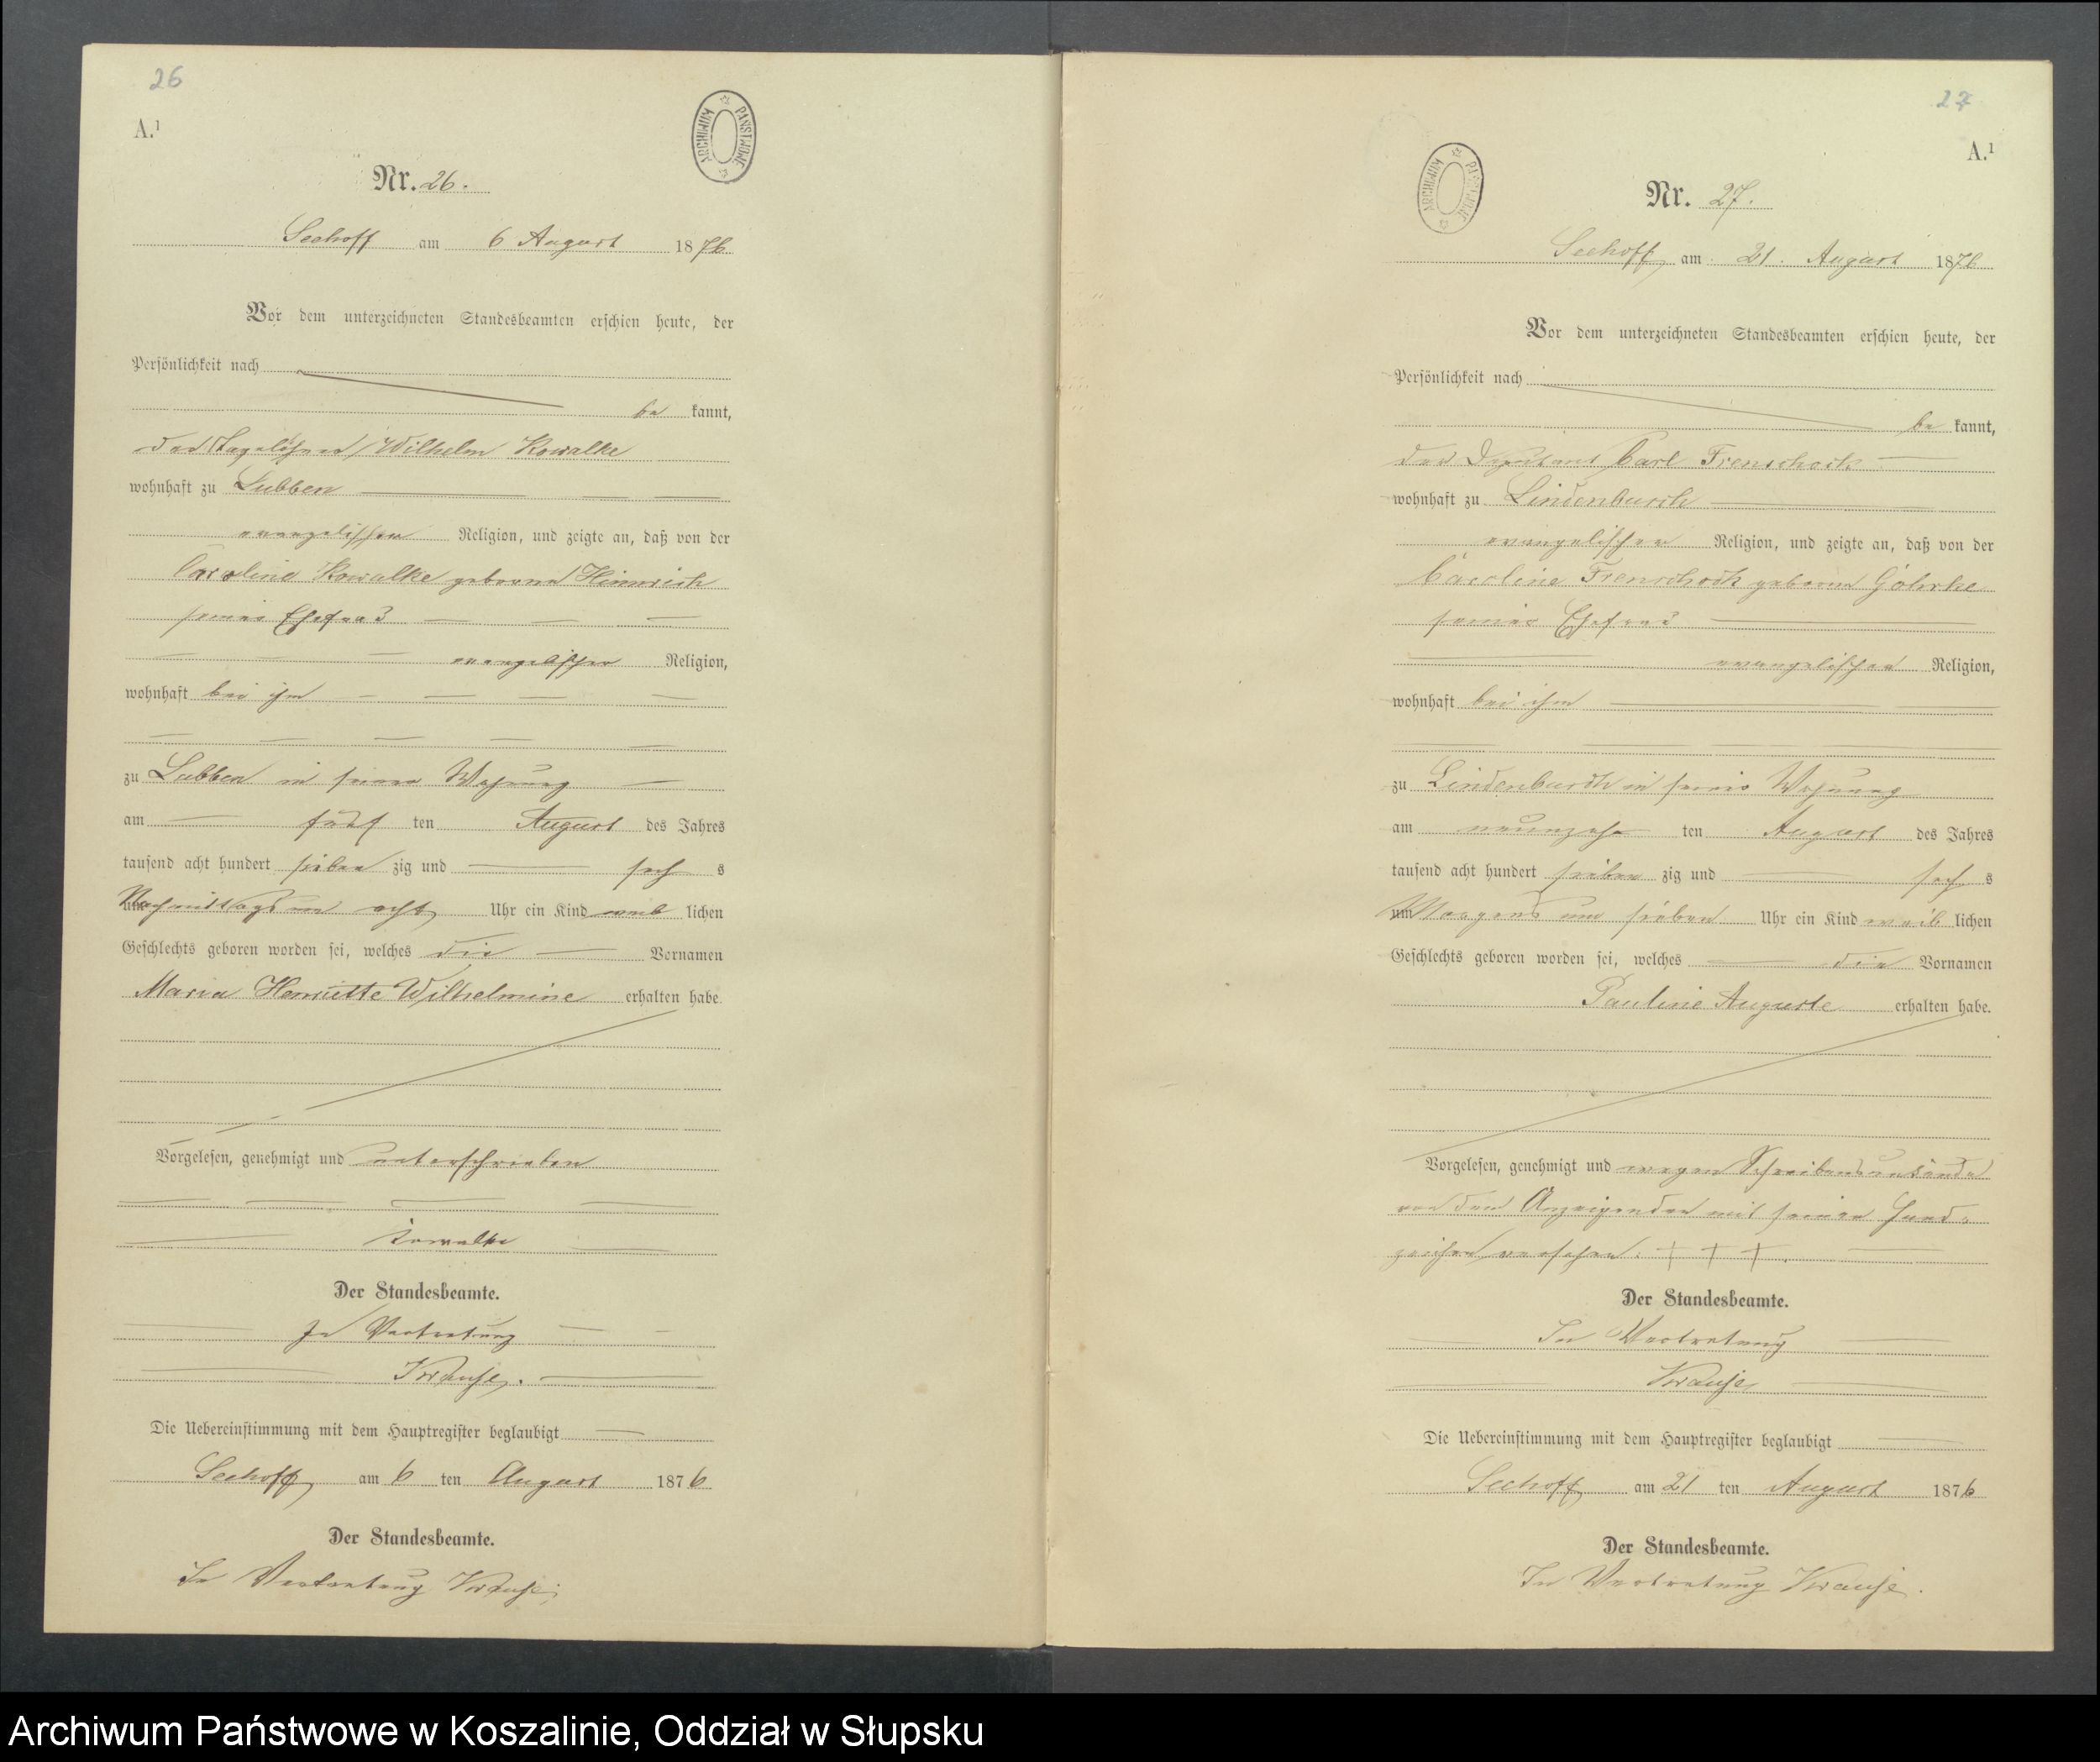 26
A.¹
ARCHIWUM PAŃSTWOWE
Nr. 26.
Seehoff am 6 August 1876
Vor dem unterzeichneten Standesbeamten erschien heute, der
Persönlichkeit nach
be kannt,
der Tagelöhner Wilhelm Kowalke
wohnhaft zu Lubben
evangelischer Religion, und zeigte an, daß von der
Caroline Kowalke geborene Hinnrich
seiner Ehefrau
evangelischer Religion,
wohnhaft bei ihm
zu Lubben in seiner Wohnung
am fünf ten August des Jahres
tausend acht hundert sieben zig und sech s
Nachmittags um acht Uhr ein Kind weib lichen
Geschlechts geboren worden sei, welches die Vornamen
Maria Henriette Wilhelmine erhalten habe.
Vorgelesen, genehmigt und unterschrieben
Kowalke
Der Standesbeamte.
In Vertretung
Krause.
Die Uebereinstimmung mit dem Hauptregister beglaubigt
Seehoff am 6 ten August 1876
Der Standesbeamte.
In Vertretung Krause
27
A.¹
ARCHIWUM PAŃSTWOWE
Nr. 27.
Seehoff am 21. August 1876
Vor dem unterzeichneten Standesbeamten erschien heute, der
Persönlichkeit nach
be kannt,
der Deputant Carl Frenschock
wohnhaft zu Lindenbusch
evangelischer Religion, und zeigte an, daß von der
Caroline Frenschock geborene Göhrke
seiner Ehefrau
evangelischer Religion,
wohnhaft bei ihm
zu Lindenbusch in seiner Wohnung
am neunzehn ten August des Jahres
tausend acht hundert sieben zig und sech s
um Morgens um sieben Uhr ein Kind weib lichen
Geschlechts geboren worden sei, welches die Vornamen
Pauline Auguste erhalten habe.
Vorgelesen, genehmigt und wegen Schreibensunkunde
von dem Anzeigenden mit seinen Hand-
zeichen versehen. + + +
Der Standesbeamte.
In Vertretung
Krause
Die Uebereinstimmung mit dem Hauptregister beglaubigt
Seehoff am 21 ten August 1876
Der Standesbeamte.
In Vertretung Krause.
Archiwum Państwowe w Koszalinie, Oddział w Słupsku